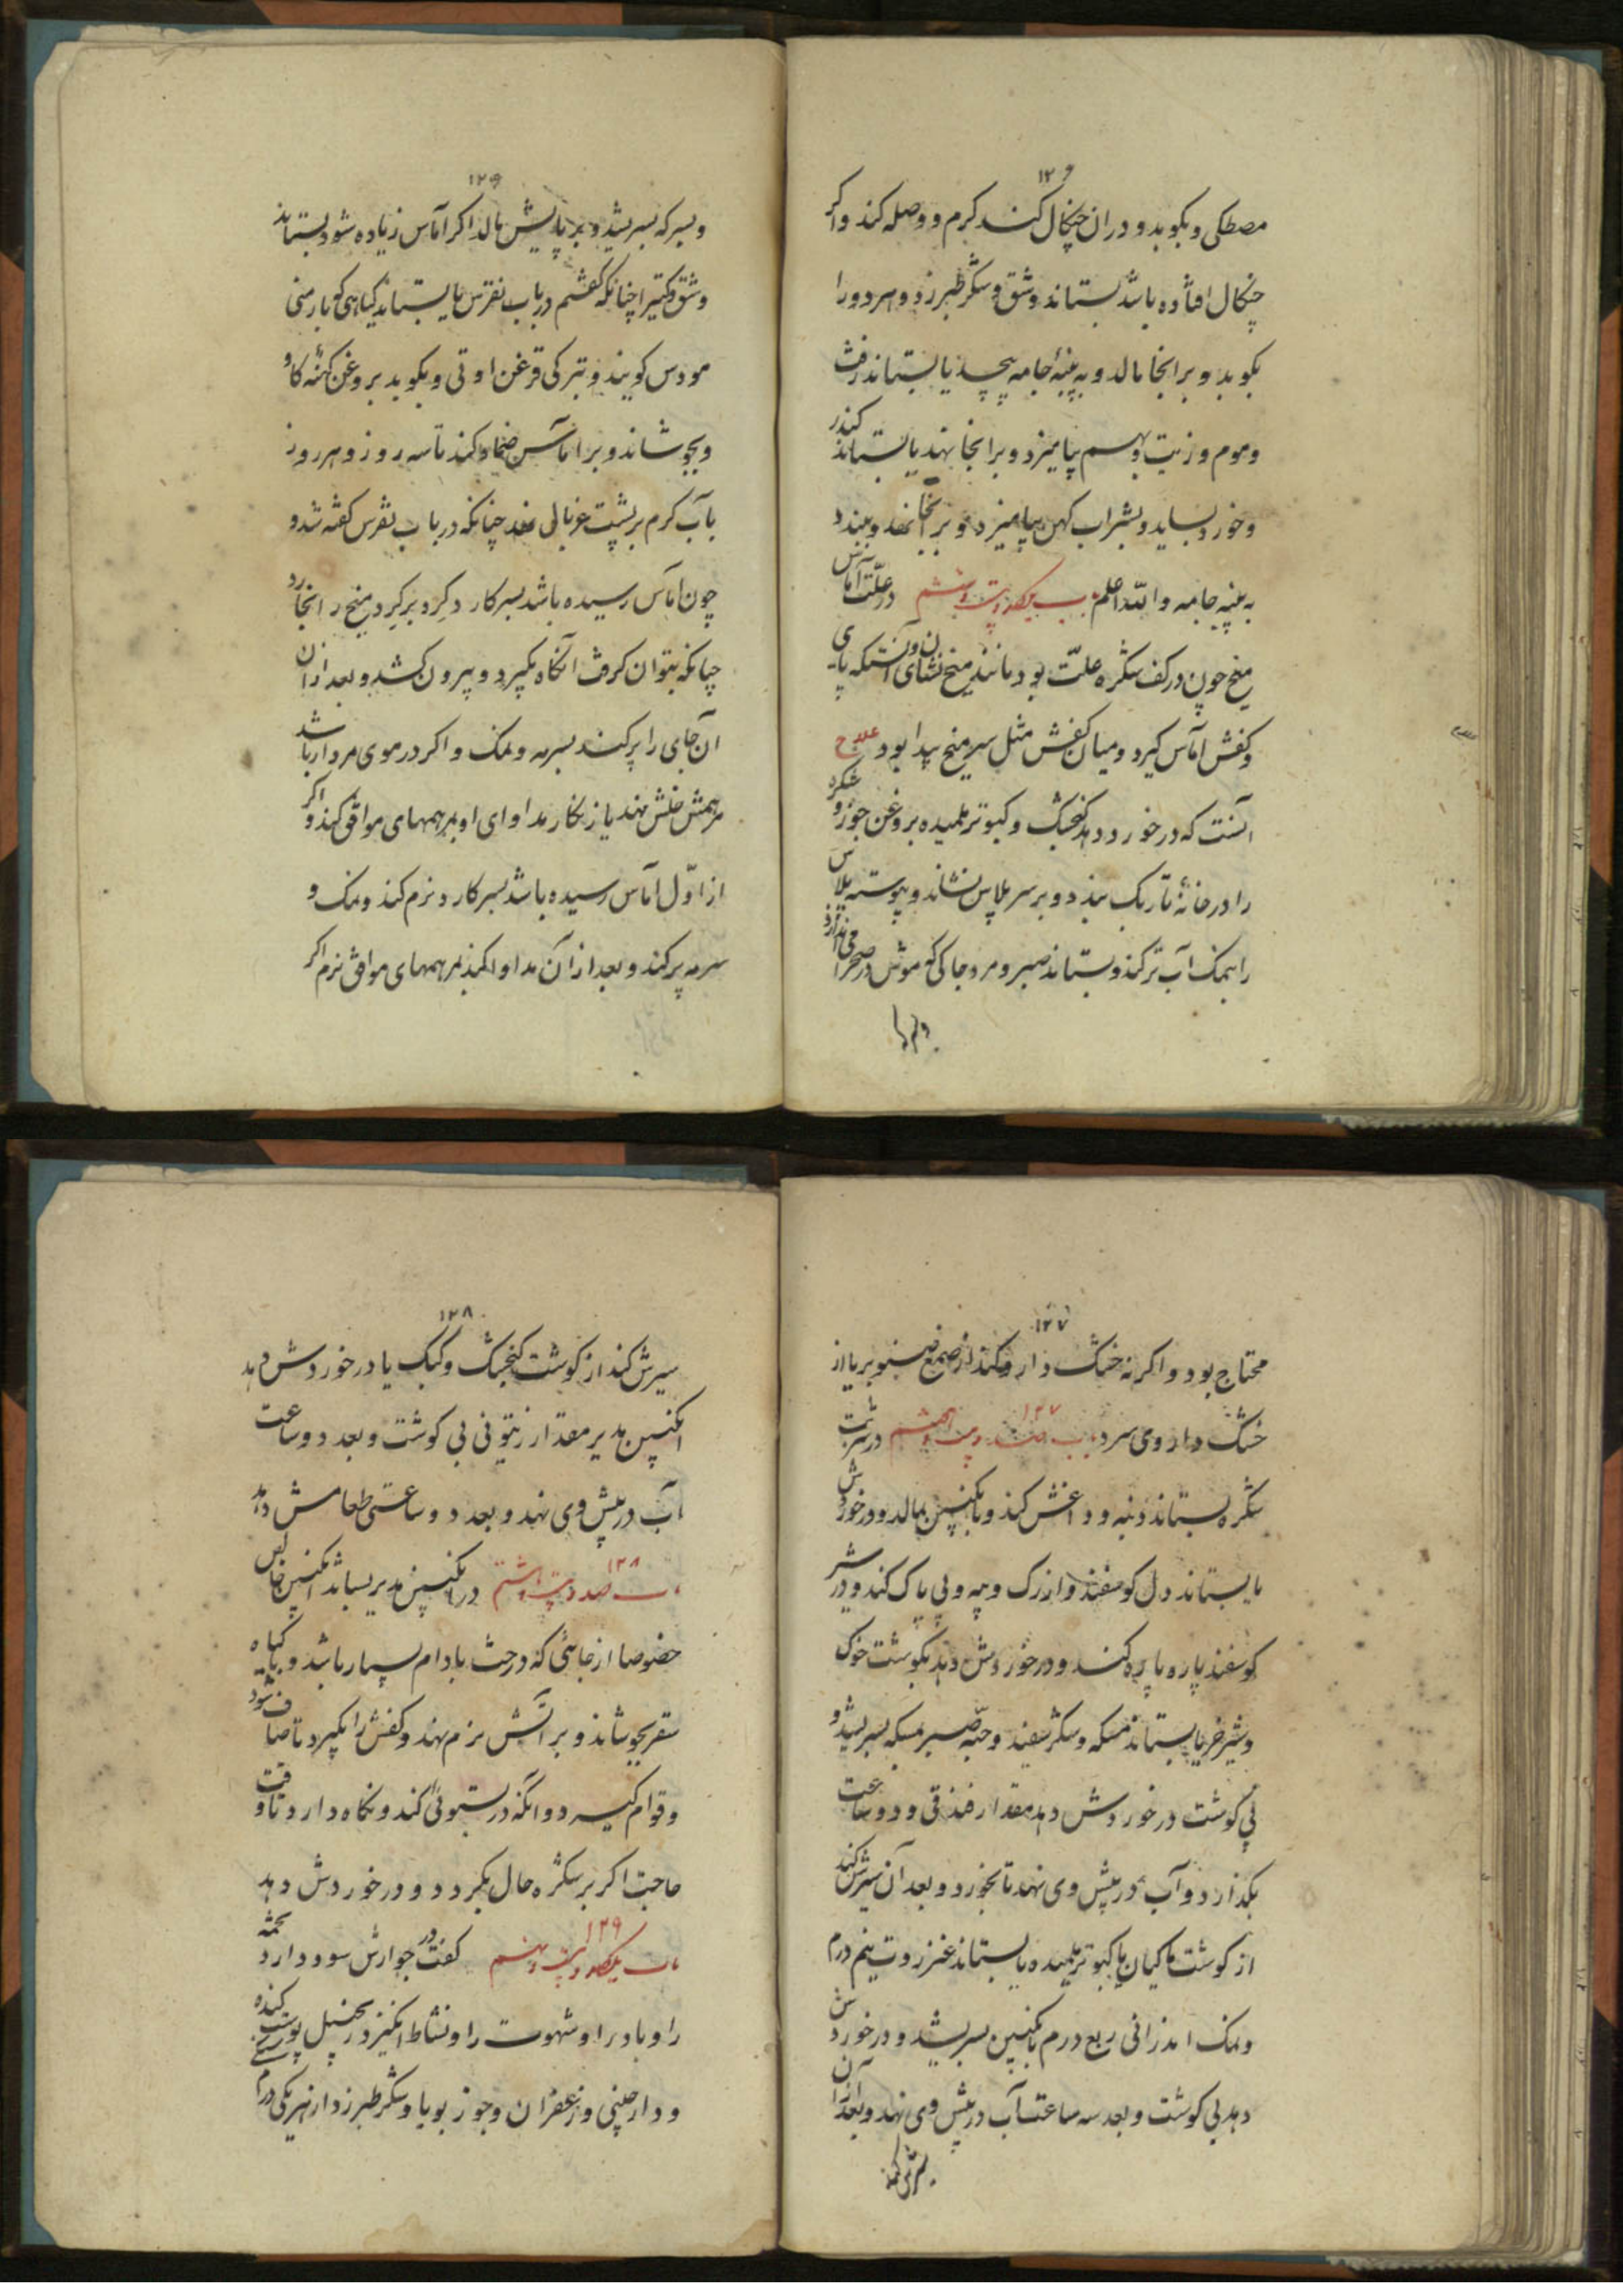 ۱۲۶
مصطکی و بکوبد و دران چنکال کند کرم و وصله کند و اکر
چنکال افتاده باشد بستاند وشق و شکر طبرزد و هر دو را
بکوبد و برانجا مالد و به پنبه جامه پیچد یا بستاند زفت
و موم و زیت و بهم بیامیزد و برانجا نهد یا بستاند کندر
و خورد بساید و بشراب کهن بیامیزد و برانجا نهد و ببندد
به پنبه جامه و الله اعلم باب یکصد و بیست و ششم در علت آماس
میخ چون در کف شکره علت بود مانند میخ نشان آنستکه پای
و کفش اماس کیرد و میان کفش مثل سر میخ پیدا بود علاج
آنست که در خورد دهد کنجشک و کبوتر ملمیده بروغن جوز و شکره
را در خانهٔ تاریک بندد و بر سر پلاس نشاند و پیوسته پلاس
را بنمک آب تر کند و بستاند صبر و مر و خاکی که موش در صحرا
۱۲۶
و بسرکه بسریشد و بر پایش مالد اکر آماس زیاده شود بستاند
وشق و کتیرا چنانکه کفتیم در باب نقرس یا بستاند کیاهی که بارمنی
مودس کویند و بترکی قرغن اوتی و بکوبد بروغن کهنهٔ کاو
و بجوشاند و بر اماس ضماد کند تا سه روز و هر روز
بآب کرم بر پشت غربالی نهد چنانکه در باب نقرس کفته شد و
چون اماس رسیده باشد بسر کارد کرد بر کرد میخ را انجا
چنانکه بتوان کرفت آنکاه بکیرد و بیرون کشد و بعد ازان
ان جای را پر کند بسرمه و نمک و اکر در موی مردار باشد
مرهمش خلش نهد یا زنکار مداوای او بمرهمهای موافق کند و اکر
از اول اماس رسیده باشد بسر کارد نرم کند و نمک و
سرمه پر کند و بعد از آن مداوا کند بمرهمهای موافق نرم اکر
۱۲۷
محتاج بود و اکر نه خشک دارو کند از صمغ صنوبر یا از
خشک داروی سرد باب صد و بیست و هفتم ۱۲۷ در شربت
شکره بستاند دنبه و داغش کند و بانکبین بمالد و در خوردش
یا بستاند دل کوسفند و از رک و پیه و پی پاک کند و در شیر
کوسفند پاره پاره کند و در خوردش دهد بکوشت خوک
و شیر خر یا بستاند مسکه و شکر سفید و حبه صبر بمسکه بسریشد و
بی کوشت در خوردش دهد مقدار فندقی و دو ساعت
بکذارد و آب در پیش وی نهد تا بخورد و بعد آن سیرش کند
از کوشت ماکیان یا کبوتر ملمیده یا بستاند عنزروت نیم درم
و نمک اندرانی ربع درم بانکبین بسریشد و در خوردش
دهد بی کوشت و بعد سه ساعت آب در پیش وی نهد و بعد ازان
سیرش کند
۱۲۸
سیرش کند از کوشت کنجشک و کبک یا در خوردش دهد
انکبین مدبر مقدار زیتونی بی کوشت و بعد دو ساعت
آب در پیش وی نهد و بعد دو ساعتی طعامش دهد
باب صد و بیست و هشتم ۱۲۸ در انکبین مدبر بستاند انکبین خالص
خصوصا از جائی که درخت بادام بسیار باشد و کیاه
سقر بجوشاند و بر آتش نرم نهد و کفش را بکیرد تا صاف شود
و قوام کیرد و انکه در بستوئی کند و نکاه دارد تا وقت
حاجت اکر بر شکره حال بکردد و در خوردش دهد
باب یکصد و بیست و نهم ۱۲۹ کفت در جوارش سود دارد تخمه
را و باد را و شهوت را و نشاط انکیزد زنجبیل پوست کنده
و دارچینی و زعفران و جوز بویا و شکر طبرزد از هر یکی درم